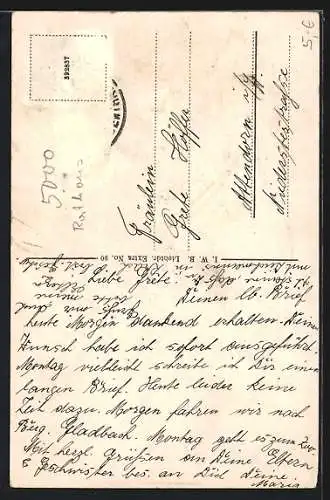 5,-€
392837
5000
Rathaus
Fräulein
Grete Höffer
Attendorn i/W
Niedersterstraße
I. W. B. Leonar. Extra No. 90
Liebe Grete!
Deinen lb. Brief
heute Morgen dankend erhalten. Deinen
Wunsch habe ich sofort ausgeführt.
Montag vielleicht schreibe ich Dir einen
langen Brief. Heute leider keine
Zeit dazu. Morgen fahren wir nach
Berg. Gladbach. Montag geht es zum
Mit herzl. Grüßen an Deine Eltern
u. Geschwister bes. an Dich Deine
Maria